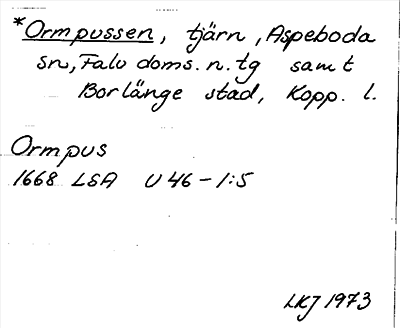 *Ormpussen, tjärn, Aspeboda
sn, Falu doms. n. tg samt
Borlänge stad, Kopp. l.
Ormpus
1668 LSA U 46 - 1:5
LKJ 1973